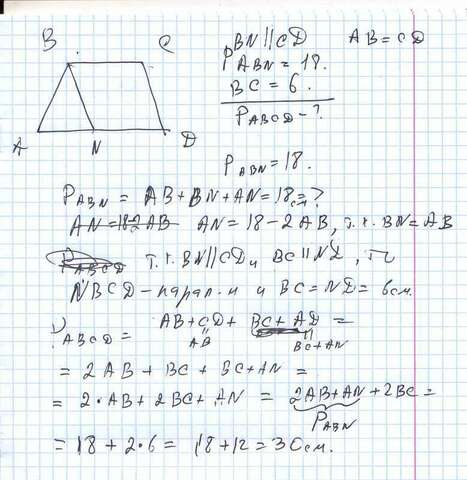 B C
A N D
BN||CD AB=CD
P ABN = 18.
BC = 6.
P ABCD - ?
P ABN = 18.
P ABN = AB + BN + AN = 18 см = ?
AN = 18-2AB AN = 18 - 2AB, т.к. BN = AB
P ABCD т.к. BN||CD и BC||ND, то
NBCD - парал-м и BC = ND = 6 см.
P ABCD = AB + CD + BC + AD =
AB BC + AN
= 2AB + BC + BC + AN =
= 2·AB + 2BC + AN = 2AB + AN + 2BC =
P ABN
= 18 + 2·6 = 18 + 12 = 30 см.